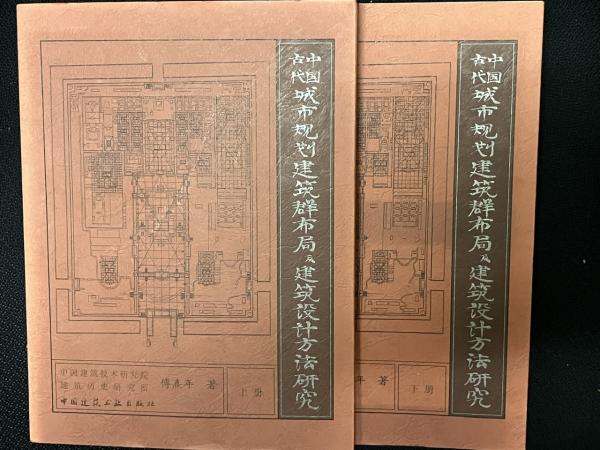 中国古代城市规划建筑群布局及建筑设计方法研究
中国建筑技术研究院
建筑历史研究所
傅熹年 著
上册
中国建筑工业出版社
中国古代城市规划建筑群布局及建筑设计方法研究
年 著
下册